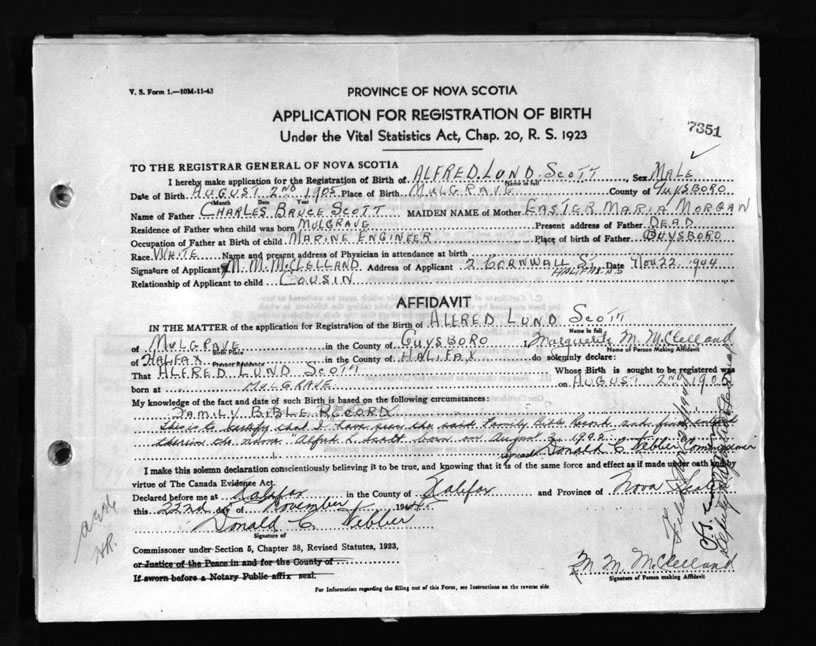 V. S. Form 1.—10M-11-43
PROVINCE OF NOVA SCOTIA
APPLICATION FOR REGISTRATION OF BIRTH
7351
Under the Vital Statistics Act, Chap. 20, R. S. 1923
TO THE REGISTRAR GENERAL OF NOVA SCOTIA
I hereby make application for the Registration of Birth of ALFRED LUND SCOTT, Sex MALE
Name in full
Date of Birth AUGUST 2ND 1905 Place of Birth MULGRAVE County of GUYSBORO
Month Date Year
Name of Father CHARLES BRUCE SCOTT MAIDEN NAME of Mother EASTER MARIA MORGAN
Residence of Father when child was born MULGRAVE Present address of Father DEAD
Occupation of Father at Birth of child MARINE ENGINEER Place of birth of Father GUYSBORO
Race WHITE Name and present address of Physician in attendance at birth
Signature of Applicant M. M. McCLELLAND Address of Applicant 2 CORNWALL ST. Date Nov 22 1944
HALIFAX N S
Relationship of Applicant to child COUSIN
AFFIDAVIT
IN THE MATTER of the application for Registration of the Birth of ALFRED LUND SCOTT
Name in full
of MULGRAVE in the County of GUYSBORO I, Marguerite M. McClelland
Birth Place Name of Person Making Affidavit
of HALIFAX in the County of HALIFAX do solemnly declare:
Present Residence
That ALFRED LUND SCOTT Whose Birth is sought to be registered was
born at MULGRAVE on AUGUST 2ND 1905
My knowledge of the fact and date of such Birth is based on the following circumstances:
FAMILY BIBLE RECORD
This is to certify that I have seen the said Family Bible Record and find
therein the name "Alfred L. Scott born on August 2, 190
Donald C Webber Commissioner
I make this solemn declaration conscientiously believing it to be true, and knowing that it is of the same force and effect as if made under oath and by
virtue of The Canada Evidence Act.
Declared before me at Halifax in the County of Halifax and Province of Nova Scotia
this 22nd day of November 1944
Donald C. Webber
Signature of
Commissioner under Section 5, Chapter 38, Revised Statutes, 1923,
or Justice of the Peace in and for the County of
If sworn before a Notary Public affix seal.
M M McClelland
Signature of Person making Affidavit
For Information regarding the filling out of this Form, see Instructions on the reverse side